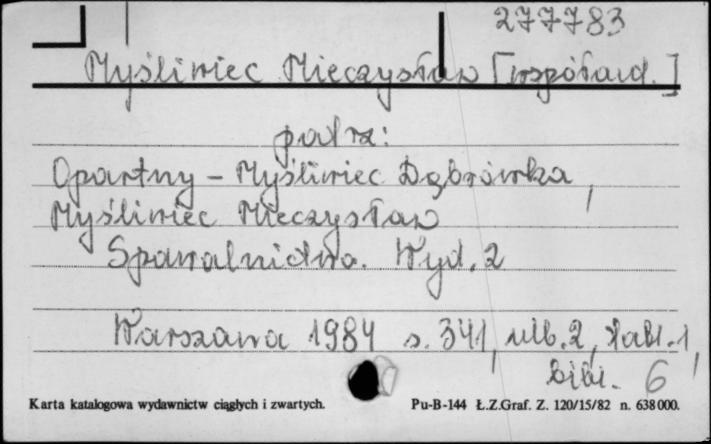 277783
Myśliwiec Mieczysław [współaut.]
patrz:
Opartny - Myśliwiec Dąbrówka,
Myśliwiec Mieczysław
Spawalnictwo. Wyd. 2
Warszawa 1984 s. 341, nlb. 2, tabl. 1,
bibl. 6
Karta katalogowa wydawnictw ciągłych i zwartych. Pu-B-144 Ł.Z.Graf. Z. 120/15/82 n. 638000.